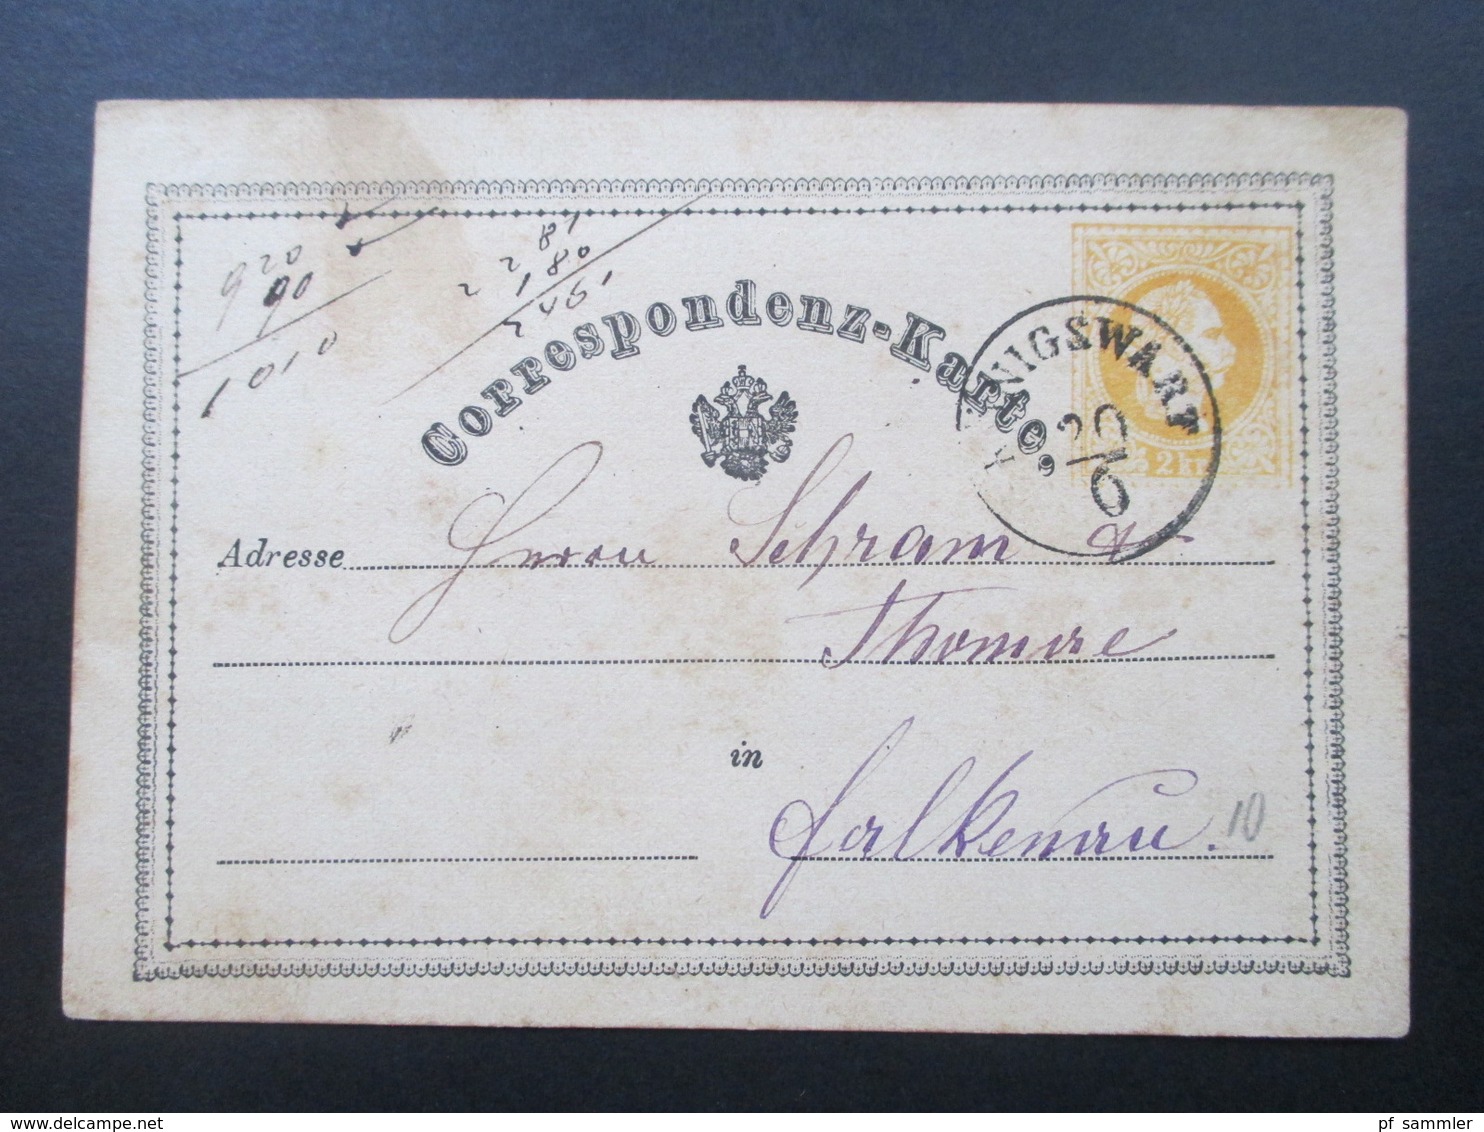 920
90
1010
281
2180
2461
Correspondenz-Karte.
NIGSWART
20/6
2 Kr
Adresse Herrn Schram &
Thomae
in
Falkenau.
10
delcampe.net
pf_sammler